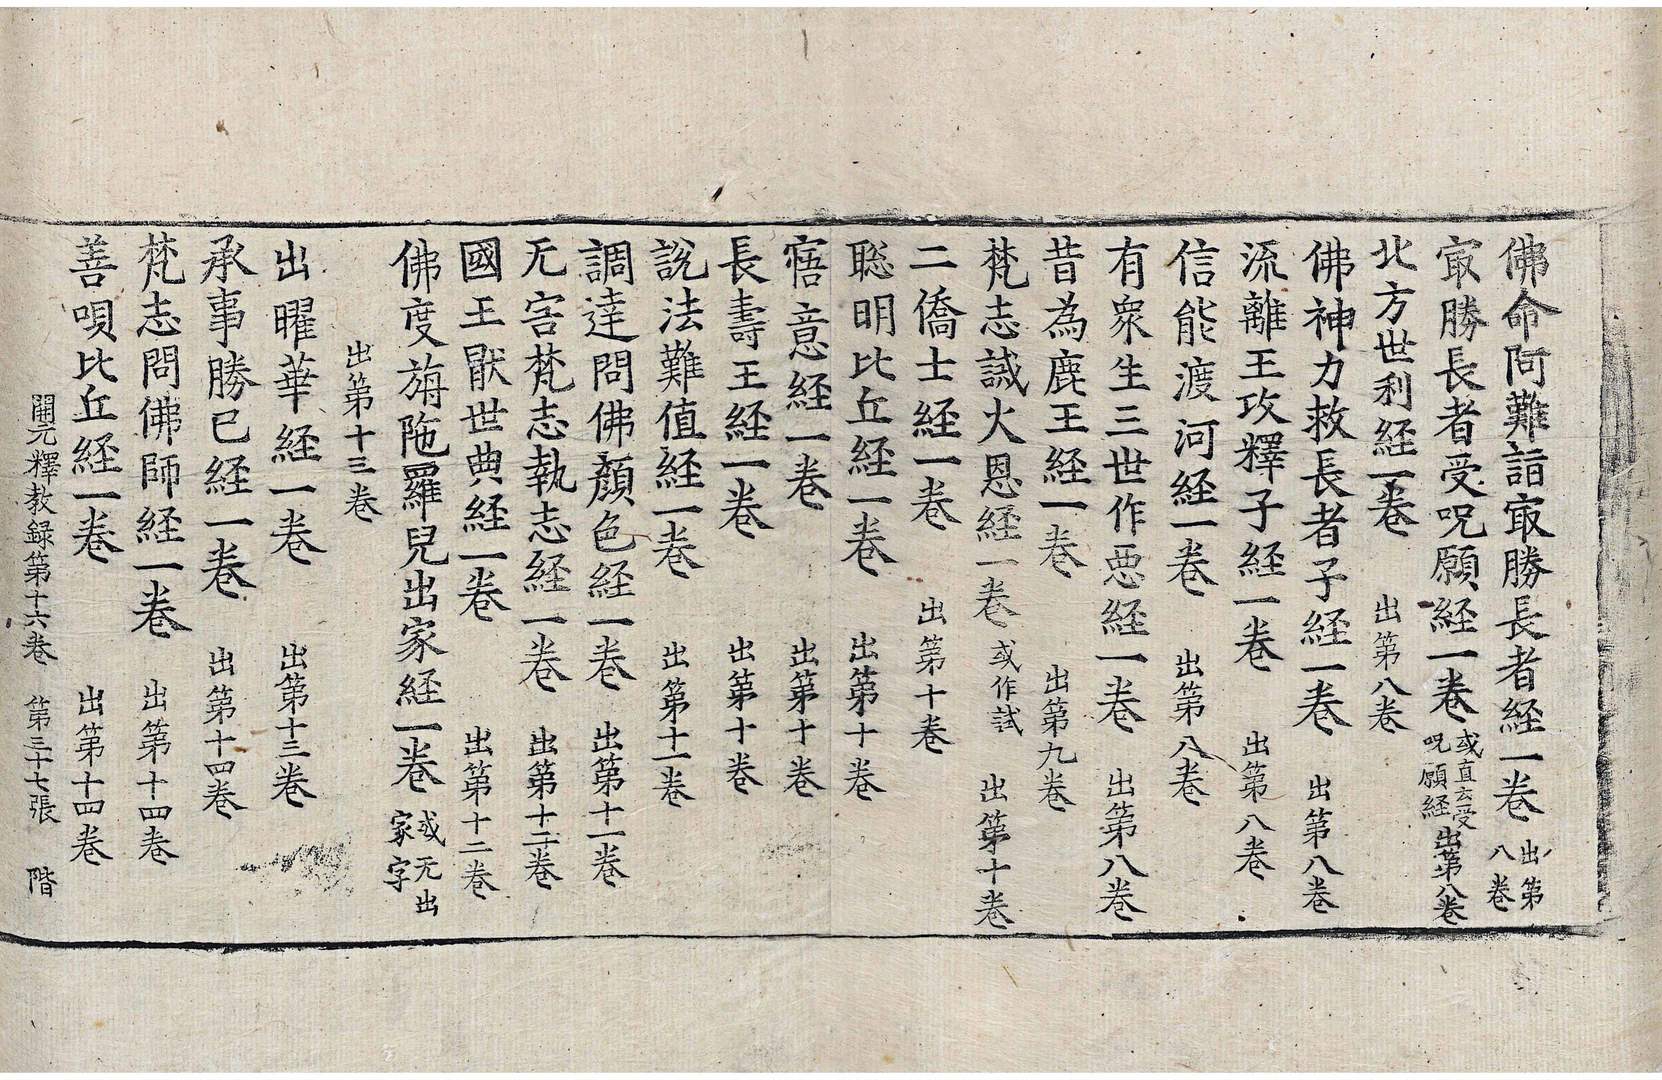 佛命阿難詣㝡勝長者経一卷 出第八卷
㝡勝長者受呪願経一卷 或直云受呪願経 出第八卷
北方世利経一卷 出第八卷
佛神力救長者子経一卷 出第八卷
流離王攻釋子経一卷 出第八卷
信能渡河経一卷 出第八卷
有衆生三世作恶経一卷 出第八卷
昔為鹿王経一卷 出第九卷
梵志諴火恩経一卷 或作試 出第十卷
二僑士経一卷 出第十卷
聡明比丘経一卷 出第十卷
寤意経一卷 出第十卷
長壽王経一卷 出第十卷
說法難值経一卷 出第十一卷
調達問佛顔色経一卷 出第十一卷
无害梵志執志経一卷 出第十二卷
國王猒世典経一卷 出第十二卷
佛度旃陁羅兒出家経一卷 或无出家字
出第十三卷
出曜華経一卷 出第十三卷
承事勝已経一卷 出第十四卷
梵志問佛師経一卷 出第十四卷
善唄比丘経一卷 出第十四卷
開元釋教録第十六卷 第三十七張 階